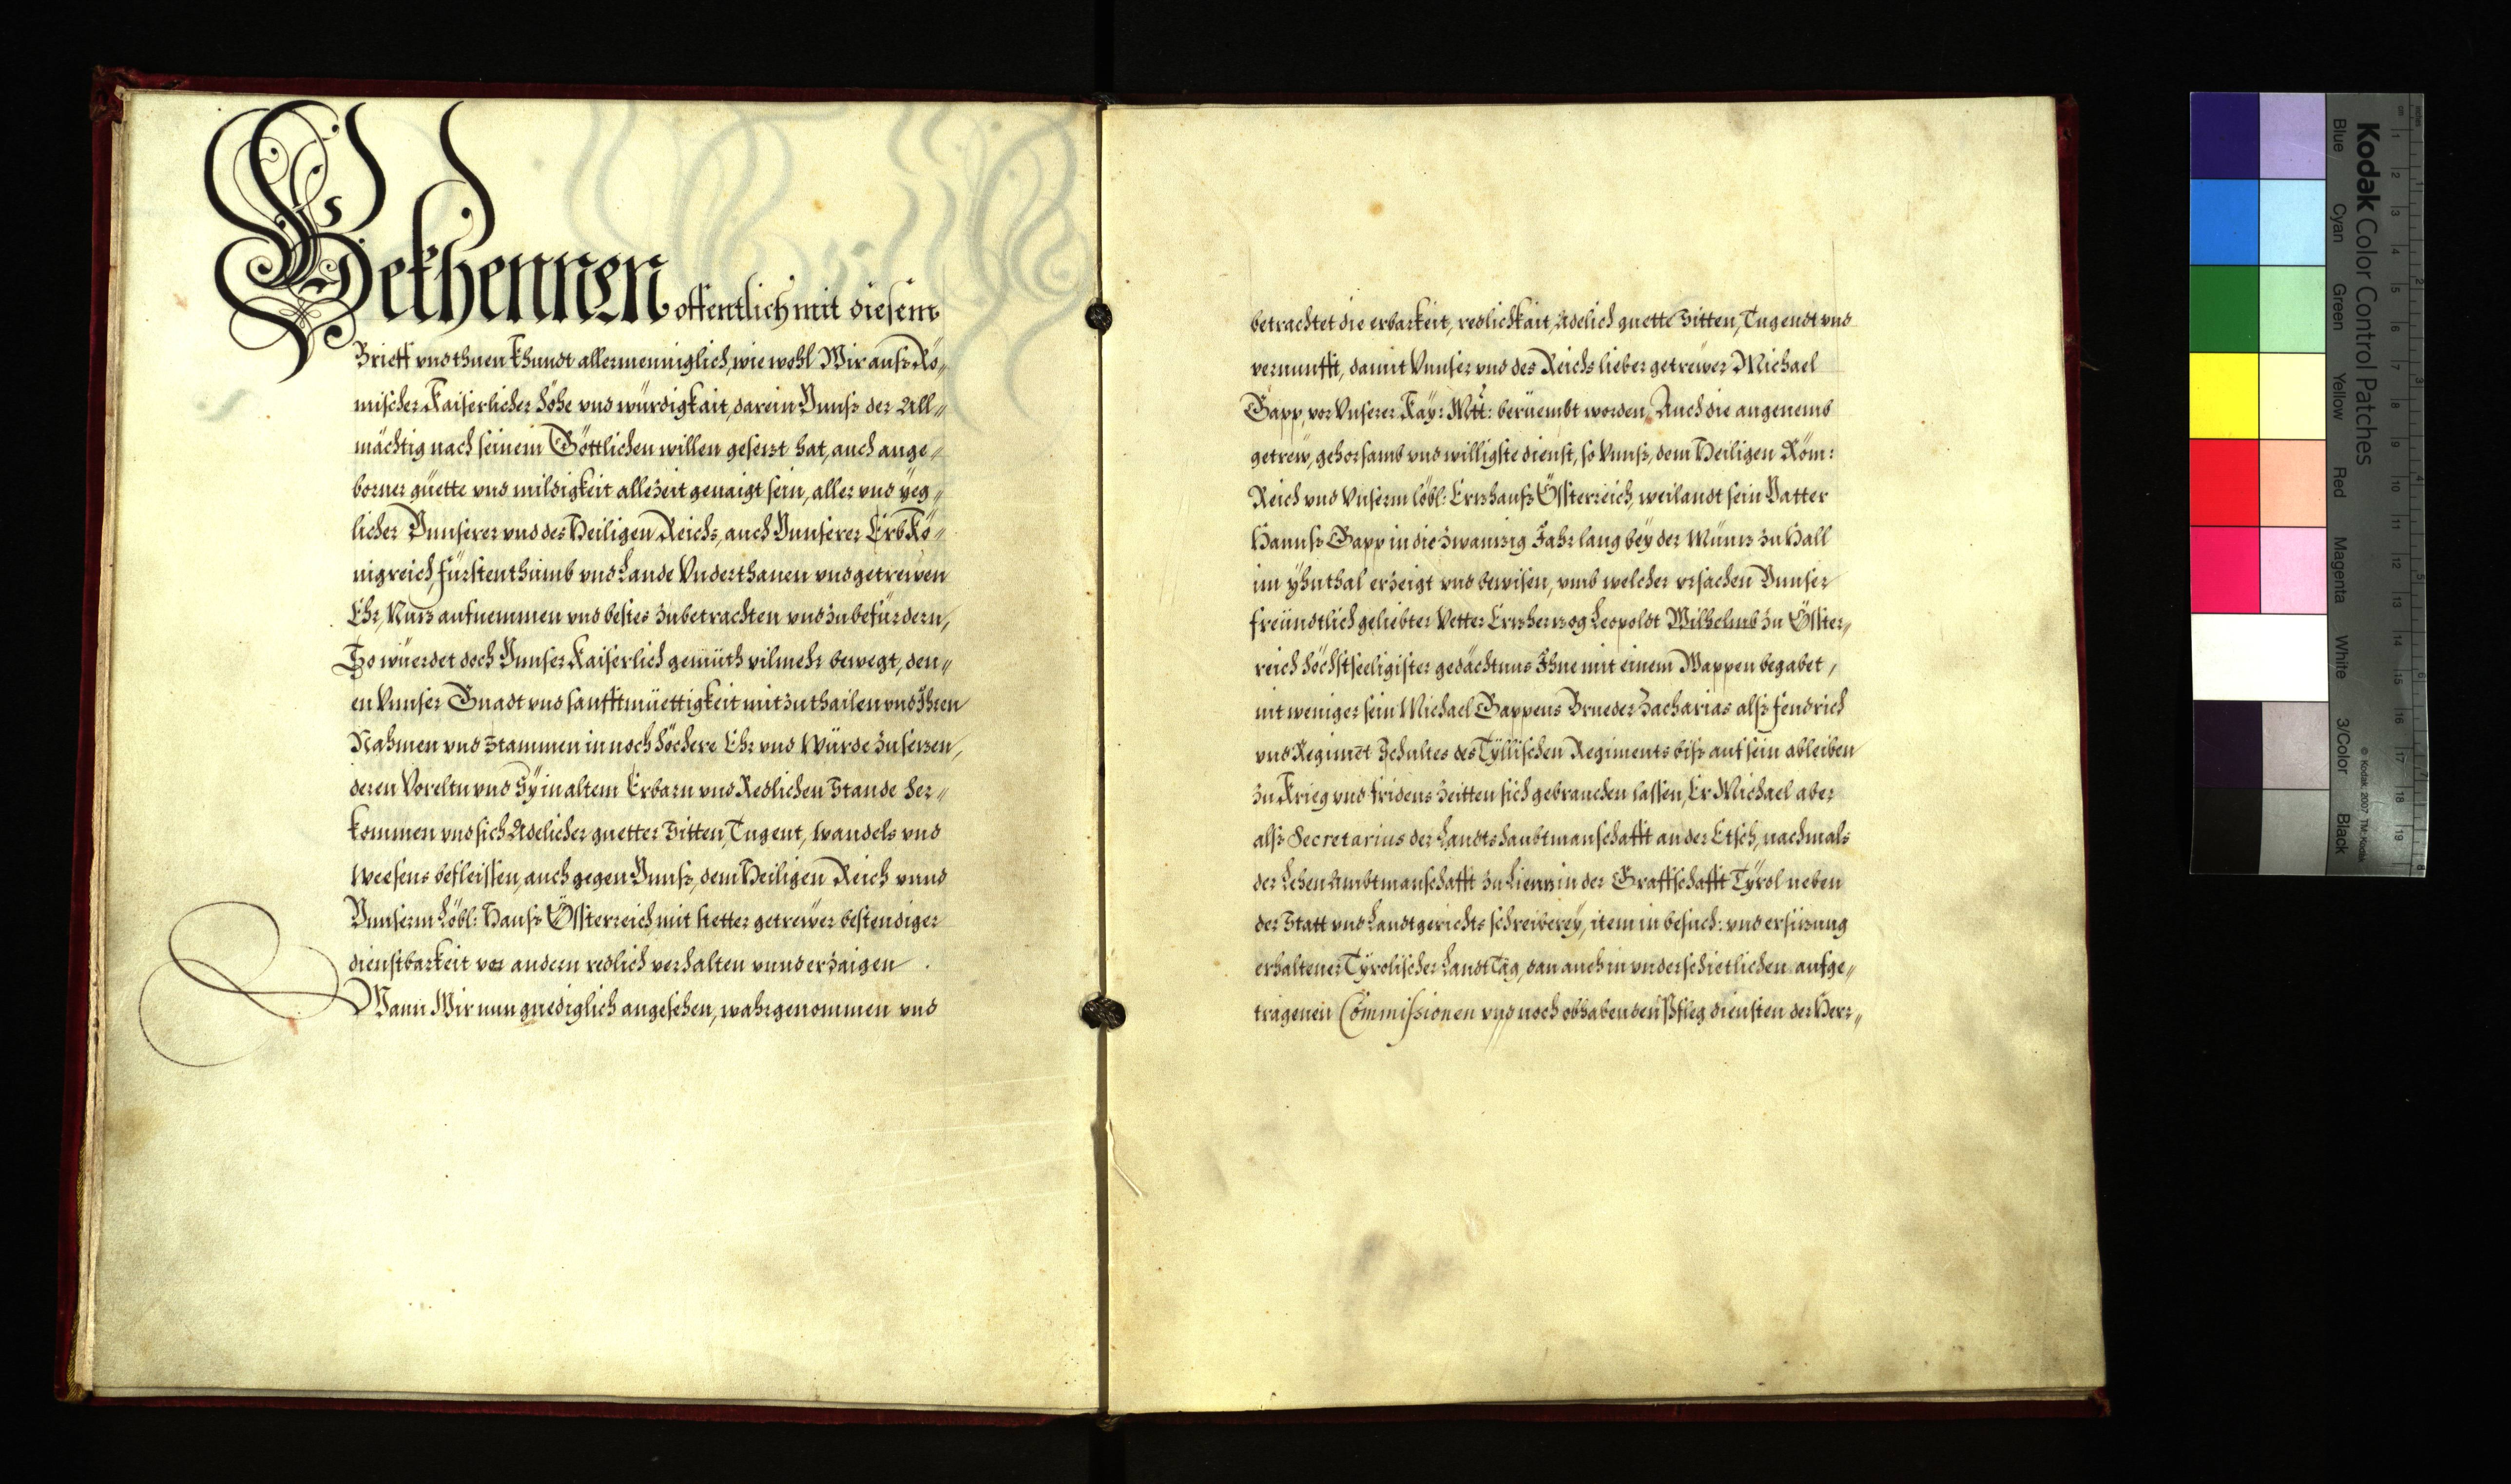 Bekhennen offentlich mit diesem
Brieff vnd thuen khundt allermenniglich, wie wohl Wir auß Rö„
mischer Kaiserlicher höhe vnd würdigkait, darein Vnnß der All„
mächtig nach seinem Göttlichen willen gesezt hat, auch ange„
borner güette vnd mildigkeit allezeit genaigt sein, aller vnd yeg„
licher Vnnserer vnd des Heiligen Reichs, auch Vnnserer ErbKö„
nigreich, fürstenthumb vnd Lande Vnderthanen vnd getrewen
Ehr, Nuz aufnemmen vnd bestes zubetrachten vnd zubefürdern,
So würdet doch Vnnser Kaiserlich gemüth vilmehr bewegt, den„
en Vnnser Gnadt vnd sanfftmüettigkeit mitzuthailen vnd Ihren
Nahmen vnd Stammen in noch höchere Ehr vnd Würde zusezen,
deren Voreltn vnd Sy in altem Erbarn vnd Redlichen Stande her„
kommen vnd sich Adelicher guetter Sitten, Tugent, Wandels vnd
Weesens befleissen, auch gegen Vnnß, dem Heiligen Reich vnnd
Vnnserm Löbl: Hauß Össterreich mit stetter getrewer bestendiger
dienstbarkeit vor andern redlich verhalten vnnd erzaigen.
Wann Wir nun gnediglich angesehen, wahrgenommen vnd
betrachtet die erbarkeit, redlichkait, Adelich guette Sitten, Tugendt vnd
vernunfft, damit Vnnser vnd des Reichs lieber getrewer Michael
Gapp, vor Vnserer Kay: Mtt: berüembt worden, Auch die angenemb
getrew, gehorsamb vnd willigste dienst, so Vnnß, dem Heiligen Röm:
Reich vnd Vnserm löbl: Erzhauß Össterreich, weilandt sein Vatter
Hannß Gapp in die zwanzig Jahr lang bey der Münz zu Hall
im yhnthal erzeigt vnd bewisen, vmb welcher vrsachen Vnnser
freündtlich geliebter Vetter Erzherzog Leopoldt Wilhelmb zu Össter„
reich höchstseeligister gedächtnus Ihne mit einem Wappen begabet,
nit weniger sein Michael Gappens Brueder Zacharias alß fendrich
vnd Regimdt Schultes des Tyllischen Regiments biß auf sein ableiben
zu Krieg vnd fridens zeitten sich gebrauchen lassen, Er Michael aber
alß Secretarius der Landtshaubtmanschafft an der Etsch, nachmals
der Lehen Ambtmanschafft zu Lienz in der Graffschafft Tyrol neben
der Statt vnd Landtgerichts schreiberey, item in besuch: vnd ersizung
erhaltener Tyrolischer LandtTäg, dan auch in vnderschietlichen aufge„
tragenen Commissionen vnd noch obhabenden Pfleg diensten der Herr„
Kodak Color Control Patches
Blue
Cyan
Green
Yellow
Red
Magenta
White
3/Color
Black
© Kodak, 2007 TM: Kodak